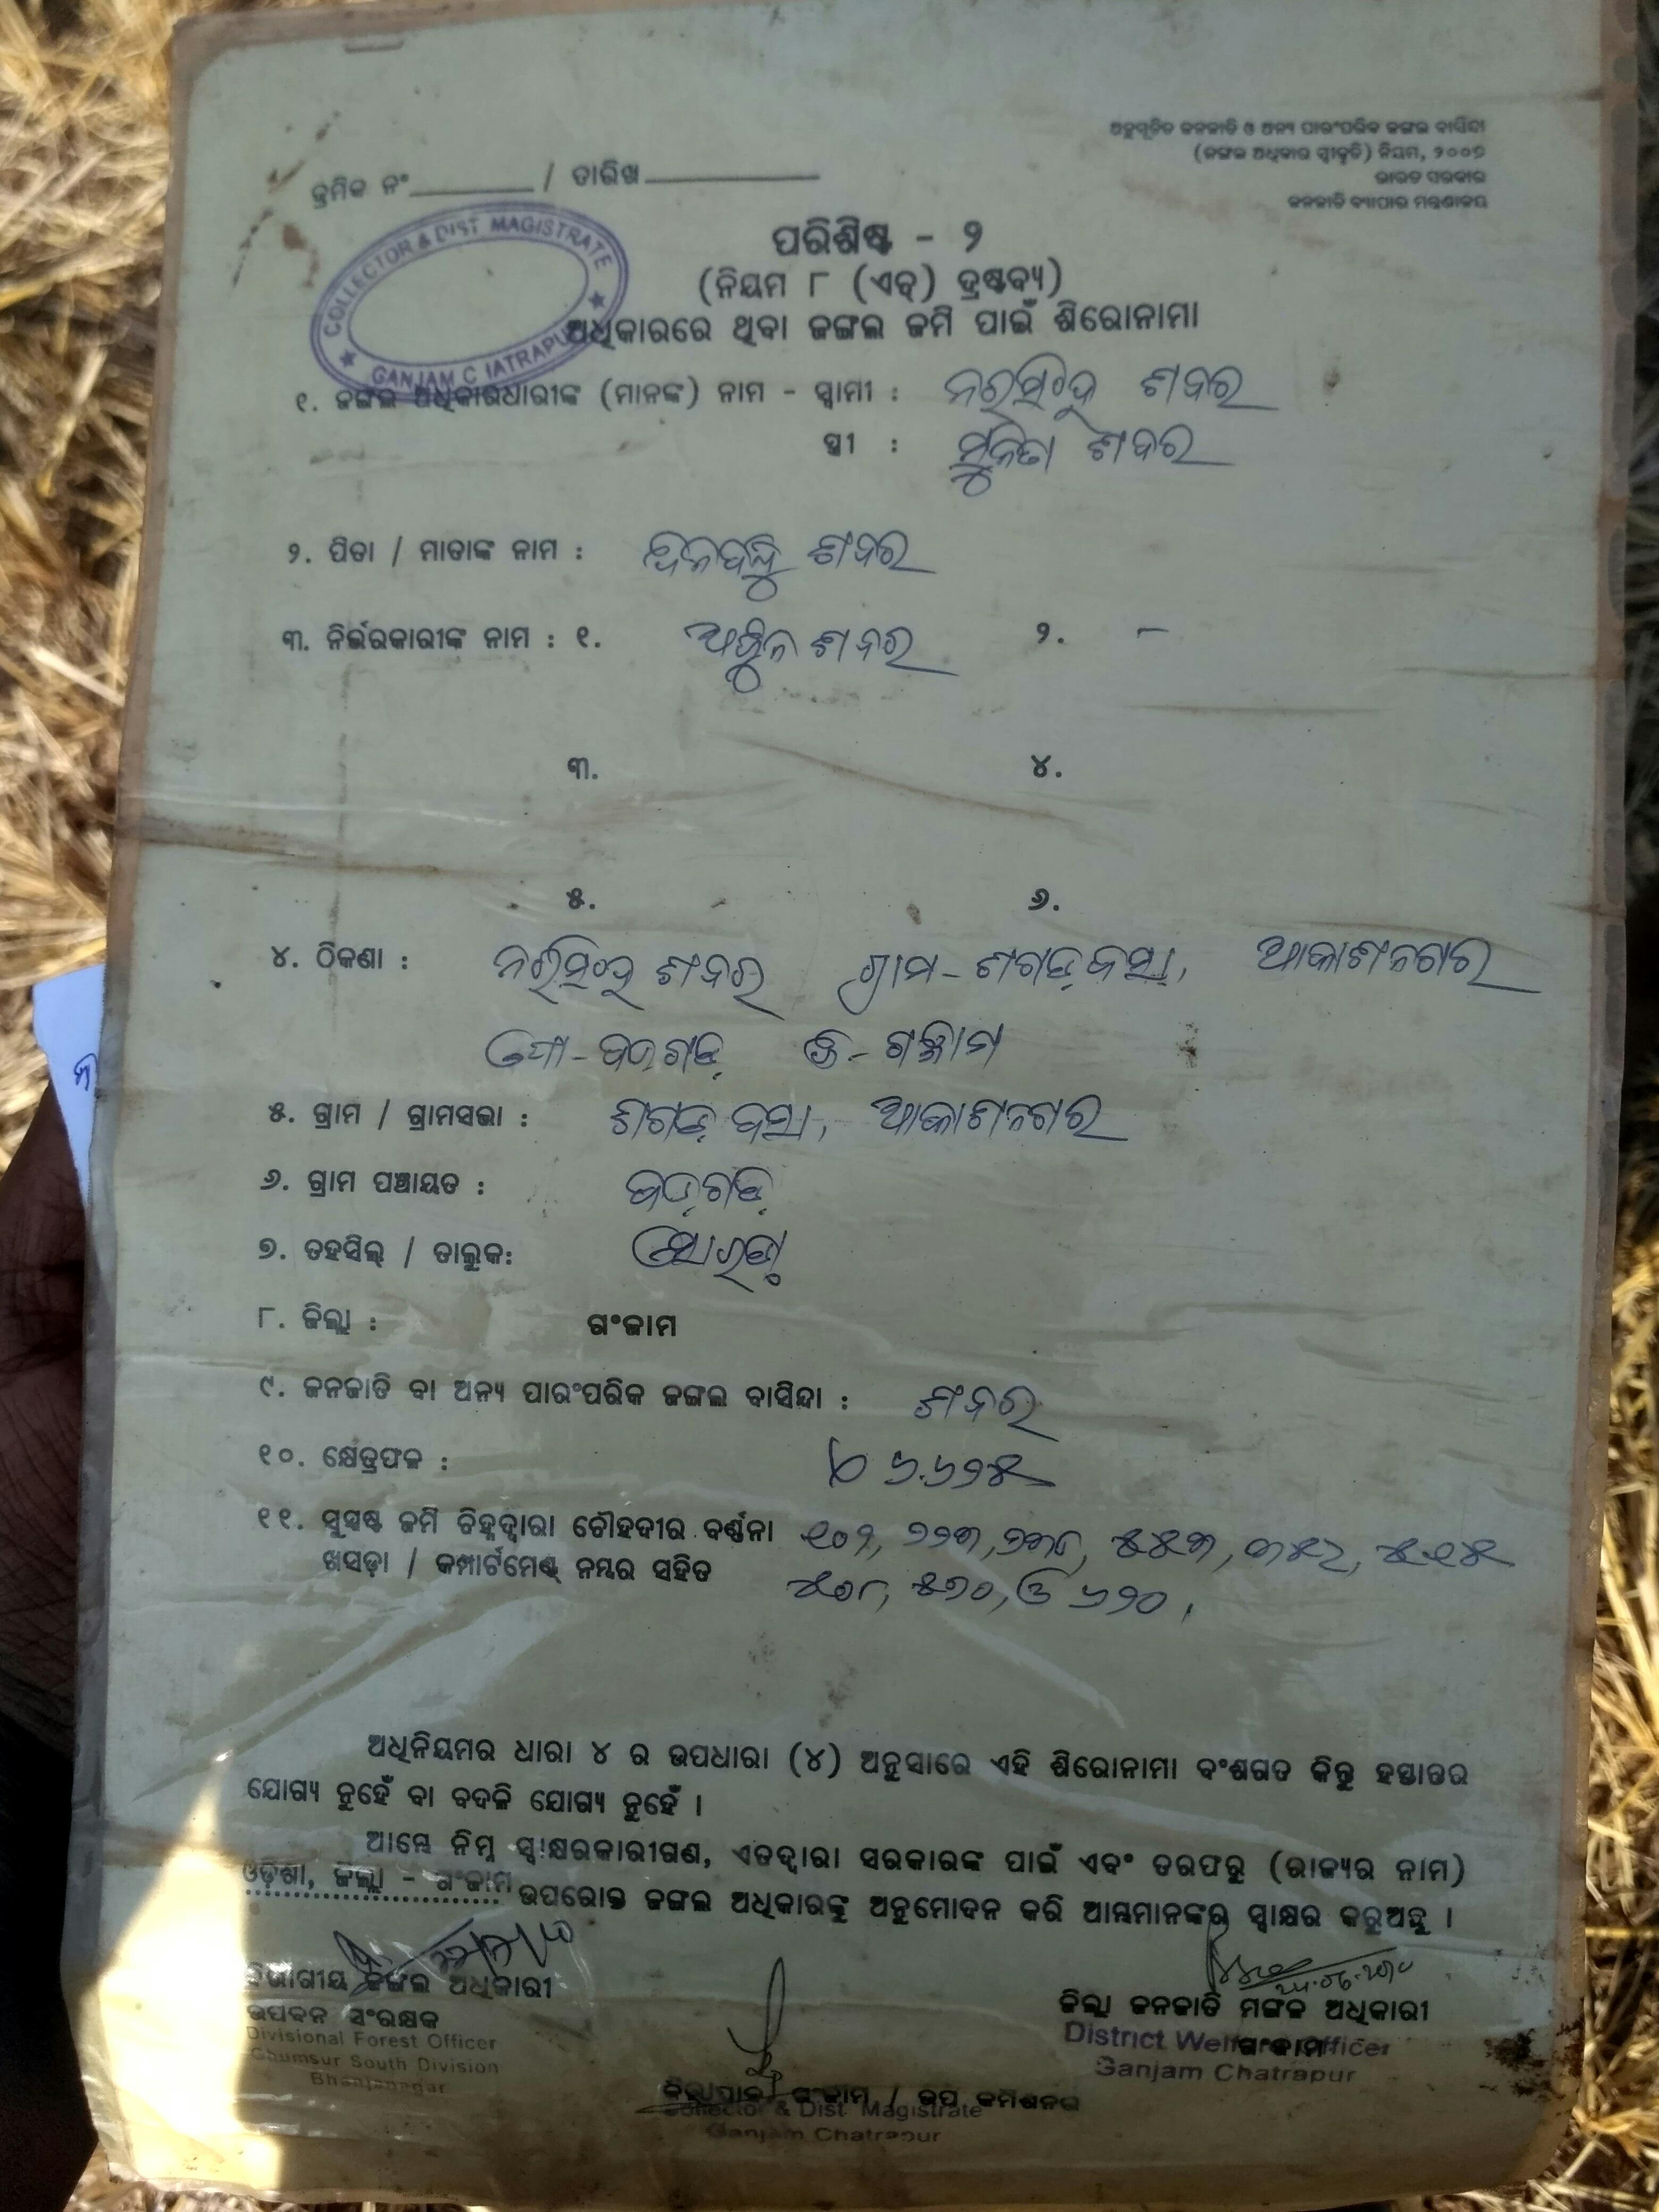 ଅନୁସୂଚିତ ଜନଜାତି ଓ ଅନ୍ୟ ପାରଂପରିକ ଜଙ୍ଗଲ ବାସିନ୍ଦା
(ଜଙ୍ଗଲ ଅଧିକାର ସ୍ୱୀକୃତି) ନିୟମ, ୨୦୦୭
ଭାରତ ସରକାର
ଜନଜାତି ବ୍ୟାପାର ମନ୍ତ୍ରଣାଳୟ
କ୍ରମିକ ନଂ / ତାରିଖ
COLLECTOR & DIST MAGISTRATE
GANJAM
ପରିଶିଷ୍ଟ - ୨
(ନିୟମ ୮ (ଏଚ୍) ଦ୍ରଷ୍ଟବ୍ୟ)
ଅଧିକାରରେ ଥିବା ଜଙ୍ଗଲ ଜମି ପାଇଁ ଶିରୋନାମା
୧. ଜଙ୍ଗଲ ଅଧିକାରଧାରୀଙ୍କ (ମାନଙ୍କ) ନାମ - ସ୍ୱାମୀ : ନରସିଂହ ଶବର
ସ୍ତ୍ରୀ : ସୁନିତା ଶବର
୨. ପିତା / ମାତାଙ୍କ ନାମ : ଦିନବନ୍ଧୁ ଶବର
୩. ନିର୍ଭରକାରୀଙ୍କ ନାମ : ୧. ଶବର ୨. –
୩. ୪.
୫. ୬.
୪. ଠିକଣା : ନରସିଂହ ଶବର ଗ୍ରାମ - ଶଗଡ଼ବସା, ଆକାଶନଗର
ପୋ - ବଡ଼ଗଡ଼ ଜି - ଗଞ୍ଜାମ
୫. ଗ୍ରାମ / ଗ୍ରାମସଭା : ଶଗଡ଼ବସା, ଆକାଶନଗର
୬. ଗ୍ରାମ ପଞ୍ଚାୟତ : ବଡ଼ଗଡ଼
୭. ତହସିଲ୍ / ତାଲୁକ: ସୋରଡ଼ା
୮. ଜିଲ୍ଲା : ଗଂଜାମ
୯. ଜନଜାତି ବା ଅନ୍ୟ ପାରଂପରିକ ଜଙ୍ଗଲ ବାସିନ୍ଦା : ଶବର
୧୦. କ୍ଷେତ୍ରଫଳ : ୬.୬୨୫
୧୧. ସୁସ୍ପଷ୍ଟ ଜମି ଚିହ୍ନଦ୍ୱାରା ଚୌହଦୀର ବର୍ଣ୍ଣନା
ଖସଡ଼ା / କମ୍ପାର୍ଟମେଣ୍ଟ୍ ନମ୍ବର ସହିତ ୫୭୦, ଓ ୬୨୦,
ଅଧିନିୟମର ଧାରା ୪ ର ଉପଧାରା (୪) ଅନୁସାରେ ଏହି ଶିରୋନାମା ବଂଶଗତ କିନ୍ତୁ ହସ୍ତାନ୍ତର
ଯୋଗ୍ୟ ନୁହେଁ ବା ବଦଳି ଯୋଗ୍ୟ ନୁହେଁ ।
ଆମ୍ଭେ ନିମ୍ନ ସ୍ୱାକ୍ଷରକାରୀଗଣ, ଏତଦ୍ୱାରା ସରକାରଙ୍କ ପାଇଁ ଏବଂ ତରଫରୁ (ରାଜ୍ୟର ନାମ)
ଓଡ଼ିଶା, ଜିଲ୍ଲା - ଗଂଜାମ ଉପରୋକ୍ତ ଜଙ୍ଗଲ ଅଧିକାରଙ୍କୁ ଅନୁମୋଦନ କରି ଆମ୍ଭମାନଙ୍କର ସ୍ୱାକ୍ଷର କରୁଅଛୁ ।
ବିଭାଗୀୟ ଜଙ୍ଗଲ ଅଧିକାରୀ
ଉପବନ ସଂରକ୍ଷକ
Divisional Forest Officer
Ghumsur South Division
Bhanjanagar
ଜିଲ୍ଲାପାଳ ଗଂଜାମ / ଉପ କମିଶନର
Collector & Dist. Magistrate
Ganjam Chatrapur
ଜିଲ୍ଲା ଜନଜାତି ମଙ୍ଗଳ ଅଧିକାରୀ
ଗଂଜାମ
District Welfare Officer
Ganjam Chatrapur